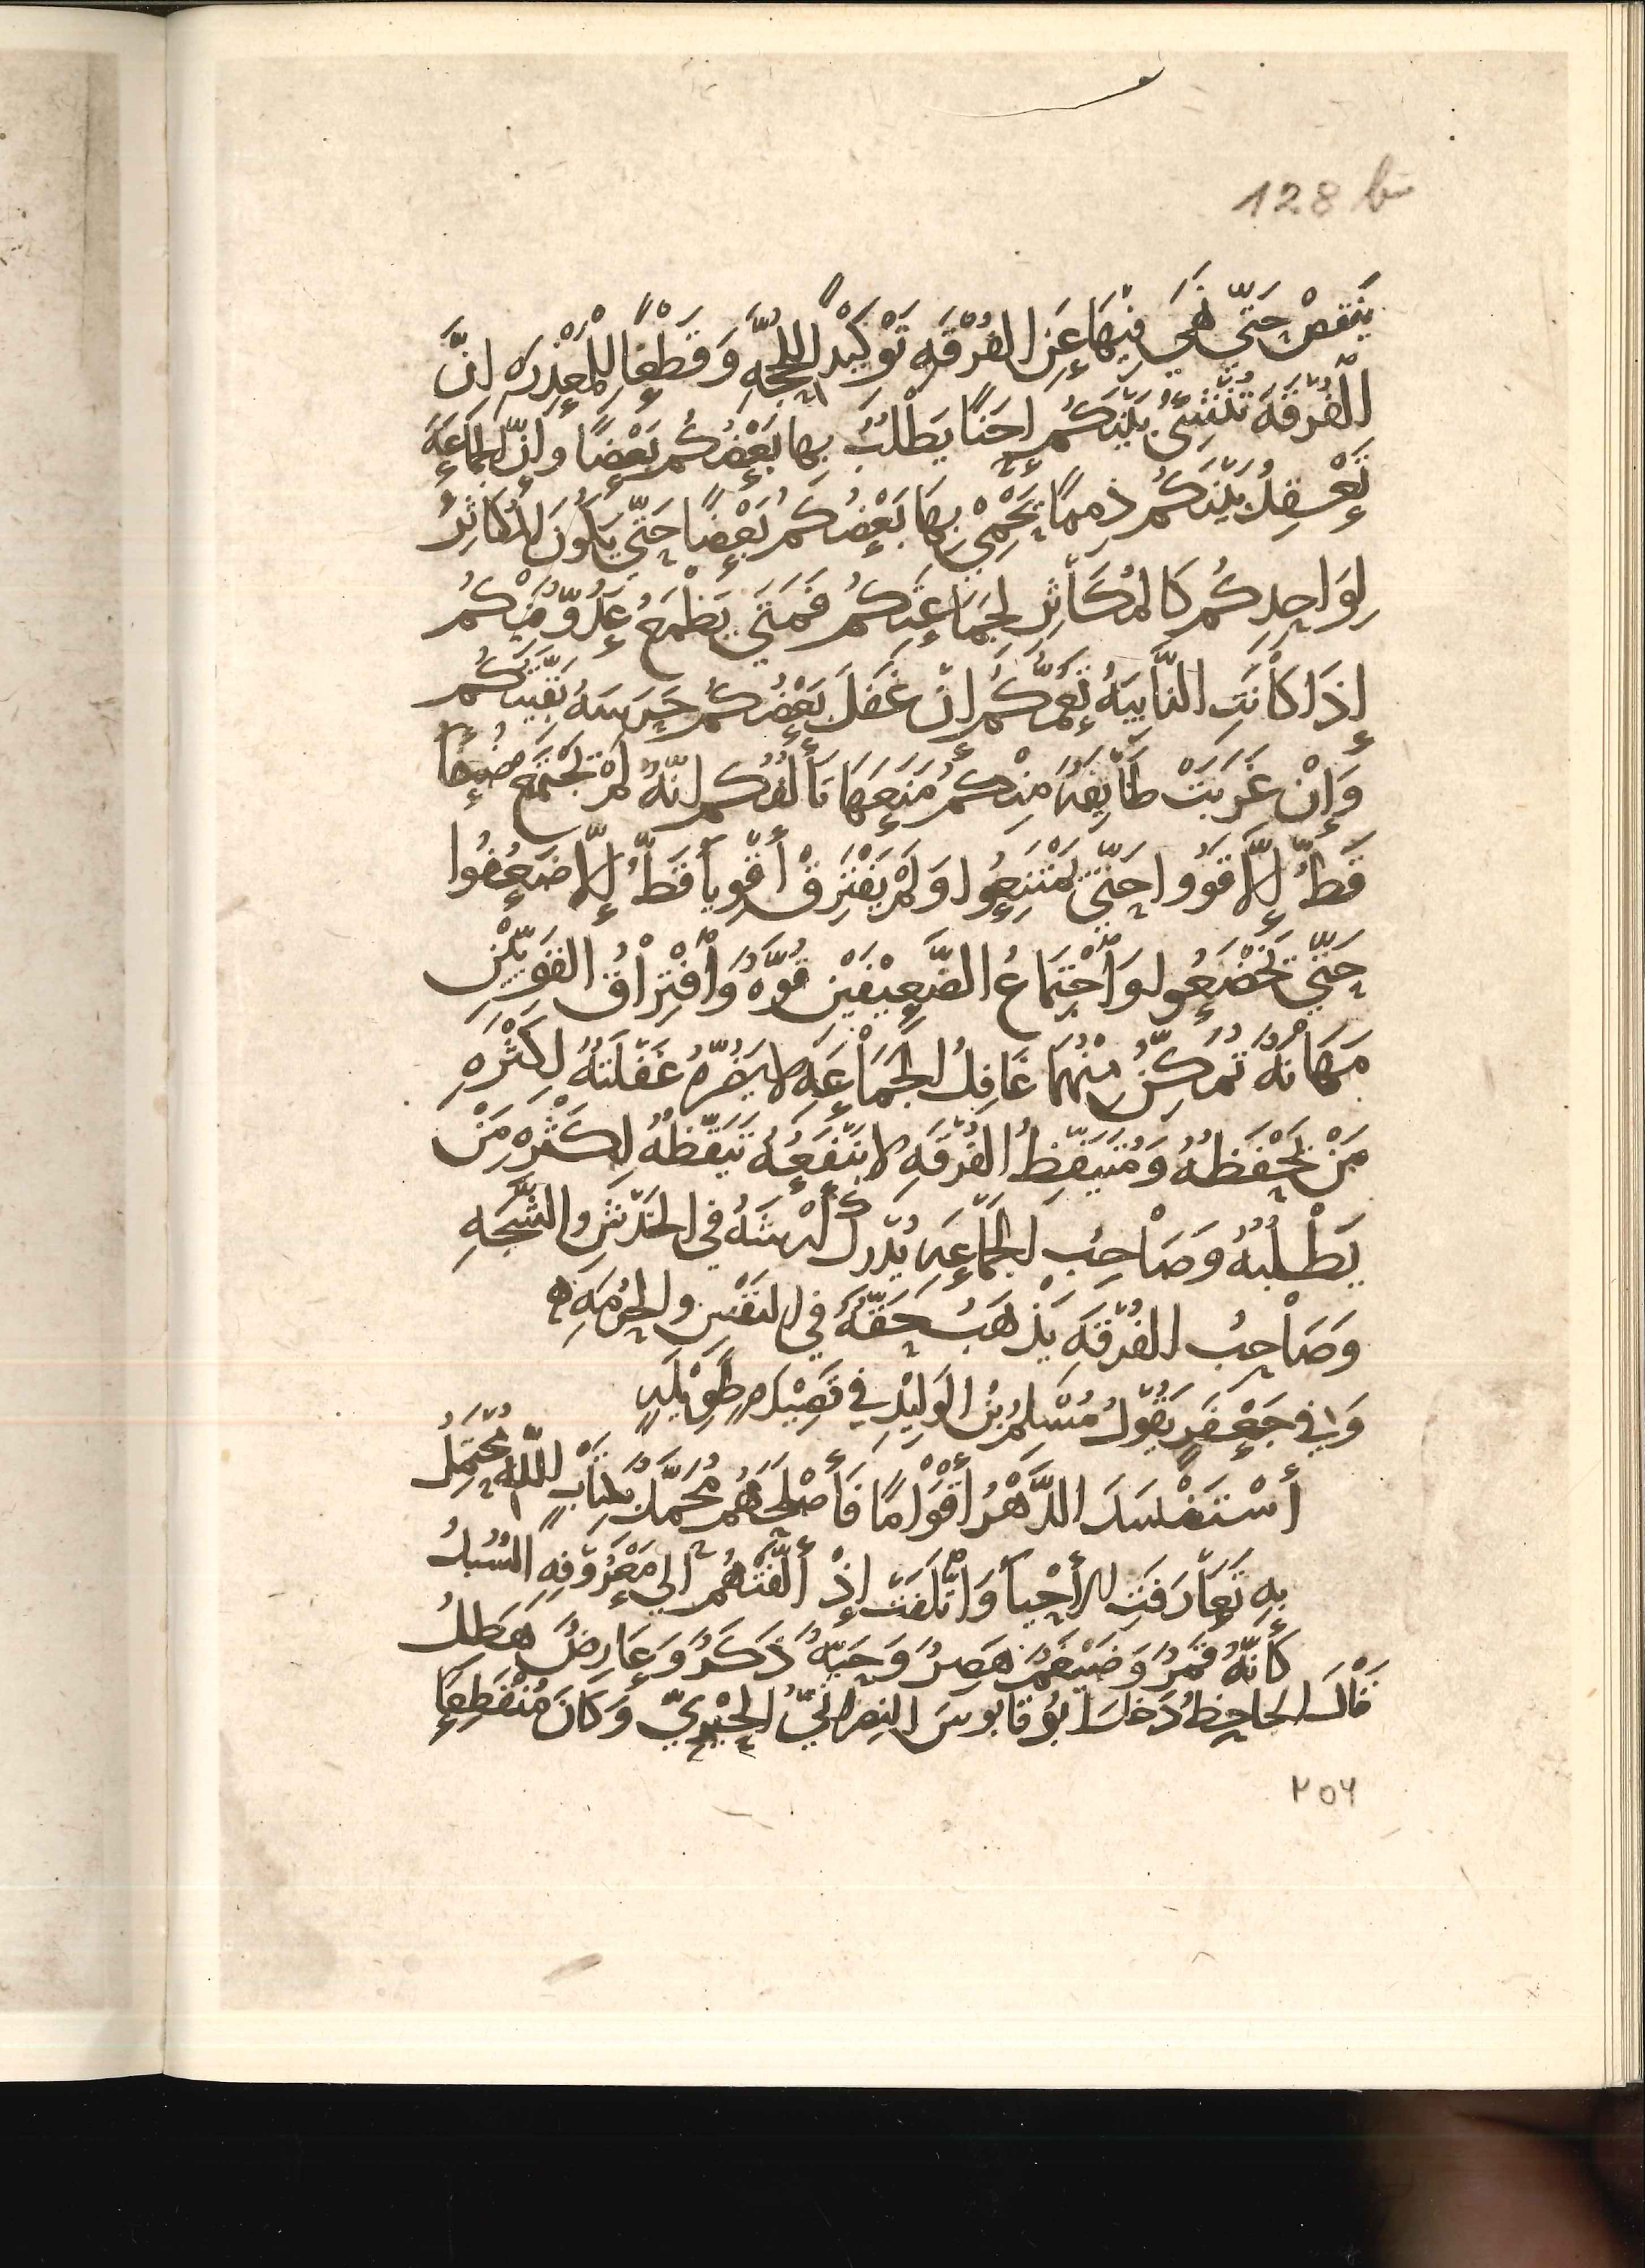 128 b
يَنْقُصْ حَتّى نَهَى فِيْهَا عَنِ الفُرْقَهِ تَوْكِيْداً لِلحُجَّهِ وَقَطْعًا لِلْمَعْذِرَهِ اِنَّ
الْفُرْقَهَ تُنْشِئُ بَيْنَكُمْ إحَنًا يَطْلُبُ بها بَعْضُكُمْ بَعْضًا وَإِنَّ الجَمَاعَهَ
تَعْقِدُ بَيْنَكُمْ ذِمَمًا يَحْمِىْ بِهَا بَعْضُكُمْ بَعْضًا حَتّى يَكُونَ المُكَاثِرُ
لِوَاحِدِكُمْ كَالمُكَاثِرِ لِجَمَاعَتِكُمْ فَمَتَى يَطْمَعُ عَدُوٌّ مِنْكُمْ
إِذَا كَانَتِ النَّايِبَهُ تَعُمُّكُمْ اِنْ غَفَلَ بَعْضُكُمْ حَرَسَهُ بَقِيَّتُكُمْ
وَإِنْ غَرَبَتْ طَايِفَهٌ مِنْكُمْ مَنَعَهَا تَأَلُّفُكُمْ اِنَّهُ لَمْ تَجْتَمِعْ ضُعَفَا
قَطُّ إِلَّا قَوُوا حَتّى يَمْتَنِعُوا وَلَمْ يَفْتَرِقْ أَقْوِيَا قَطُّ إِلَّا ضَعُفُوا
حَتّى يَخْضَعُوا وَاجْتِمَاعُ الضَّعِيْفَيْنِ قُوَّهٌ وَافْتِرَاقُ القَوِيَّيْنِ
مَهَانَهٌ تُمَكِّنُ مِنْهُمَا غَافِلُ الجَمَاعَهِ لا يَضُرّهُ غَفْلَتُهُ لِكَثْرَهِ
مَنْ يَحْفَظُهُ وَمُتَيَقِّظُ الفُرْقَهِ لا يَنْفَعُهُ تَيَقُّظُهُ لِكَثْرَهِ مَنْ
يَطْلُبُهُ وَصَاحِبُ الجَمَاعَهِ يُدْرِكُ أَرْشَهُ فى الخَدْشِ والشَّجَّهِ
وَصَاحِبُ الفُرْقَهِ يَذْهَبُ حَقُّهُ فِي النَفْسِ والحُرْمَهِ ه
وَفِي جَعْفَرٍ يَقُوْلُ مُسْلِمُ بْنُ الوَلِيْدِ في قَصِيْدَهٍ طَوِيْلَهٍ
أَسْتَفْسَدَ الدَّهْرُ أَقْوَامًا فَأَصْلَحَهُمْ مُحَمَّلٌ بِكِتَابِ اللّهِ مُحْتَمِلُ
بِهِ تَعَارَفَتِ الأَحْيَا وَائْتَلَفَتْ إِذْ أَلَّفَتْهُمْ اِلى مَعْرُوْفِهِ السُّبُلُ
كَأَنَّهُ قَمَرٌ وَضَيْغَمٌ هَصِرٌ وَحَيَّهٌ ذَكَرٌ وَعَارِضٌ هَطِلُ
قَالَ الجَاحِظُ دَخَلَ ابُوْ قَابُوسَ النصرانيُّ الحِيْرِيّ وَكَانَ مُنْقَطِعًا
٢٥٦